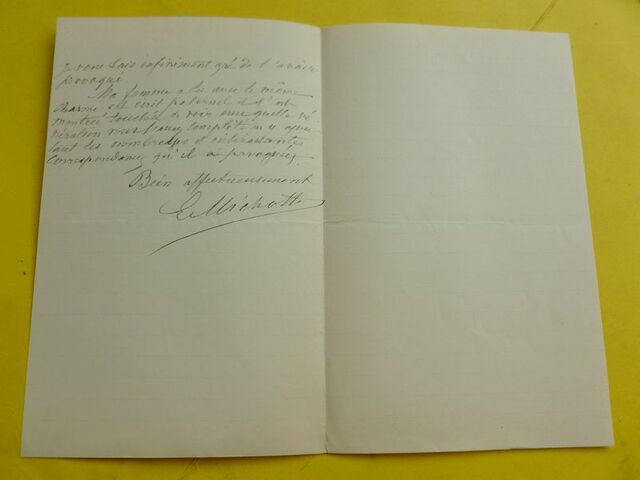 Je vous sais infiniment gré de l'avoir
provoqué
Ma femme a lu avec le même
charme cet écrit paternel et s'est
montrée touchée de voir avec quelle vé
nération vous l'avez complété en y ajou
tant les nombreuses et intéressantes
correspondances qu'il a provoquées,
Bein affectueusement
E Michotte